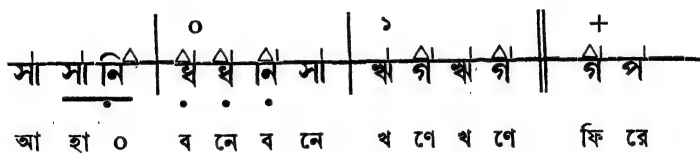 ০ ১ +
সা সা নি ধ ধ নি সা ঋ গ ঋ গ গ প
আ হা ০ ব নে ব নে খ ণে খ ণে ফি রে